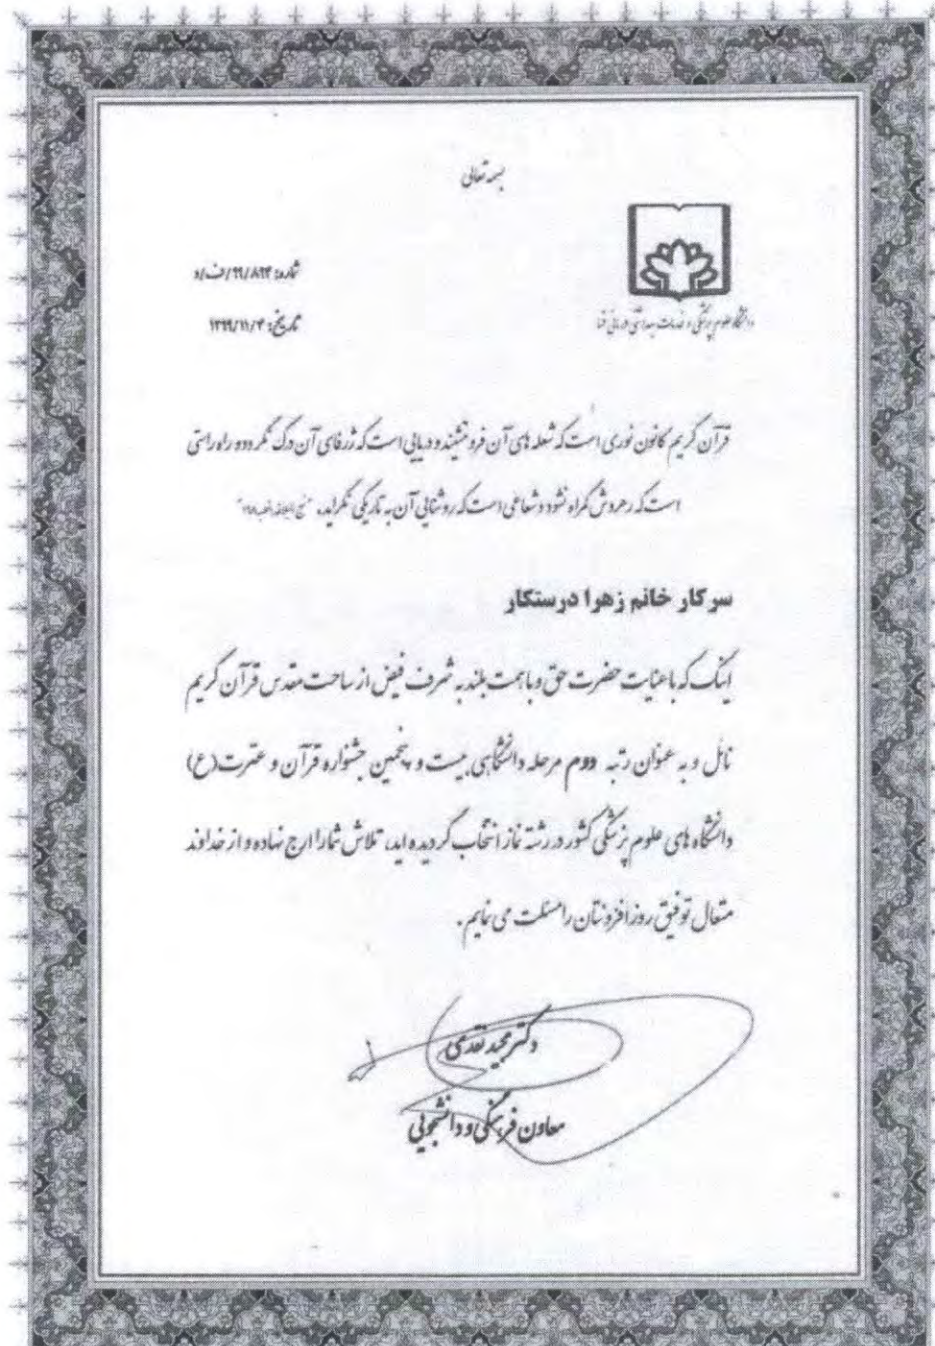 بسمه تعالی
شماره: ۹۹/۸۹۴/ف/د
تاریخ: ۱۳۹۹/۱۱/۴
دانشگاه علوم پزشکی و خدمات بهداشتی درمانی فسا
قرآن کریم کانون نوری است که شعله های آن فرو ننشیند و دریایی است که ژرفای آن درک نگردد و راه راستی
است که رهروش گمراه نشود و شعاعی است که روشنایی آن به تاریکی نگراید، "نهج البلاغه،
سرکار خانم زهرا درستکار
اینک که با عنایت حضرت حق و با همت بلند به شرف فیض از ساحت مقدس قرآن کریم
نائل و به عنوان رتبه دوم مرحله دانشگاهی بیست و پنجمین جشنواره قرآن و عترت (ع)
دانشگاه های علوم پزشکی کشور در رشته نماز انتخاب گردیده اید، تلاش شما را ارج نهاده و از خداوند
متعال توفیق روز افزونتان را مسئلت می نمایم.
دکتر مجید نقدی
معاون فرهنگی و دانشجویی